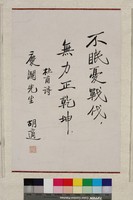 不眠憂戰伐，
無力正乾坤．
杜甫詩
夔淵先生
胡適